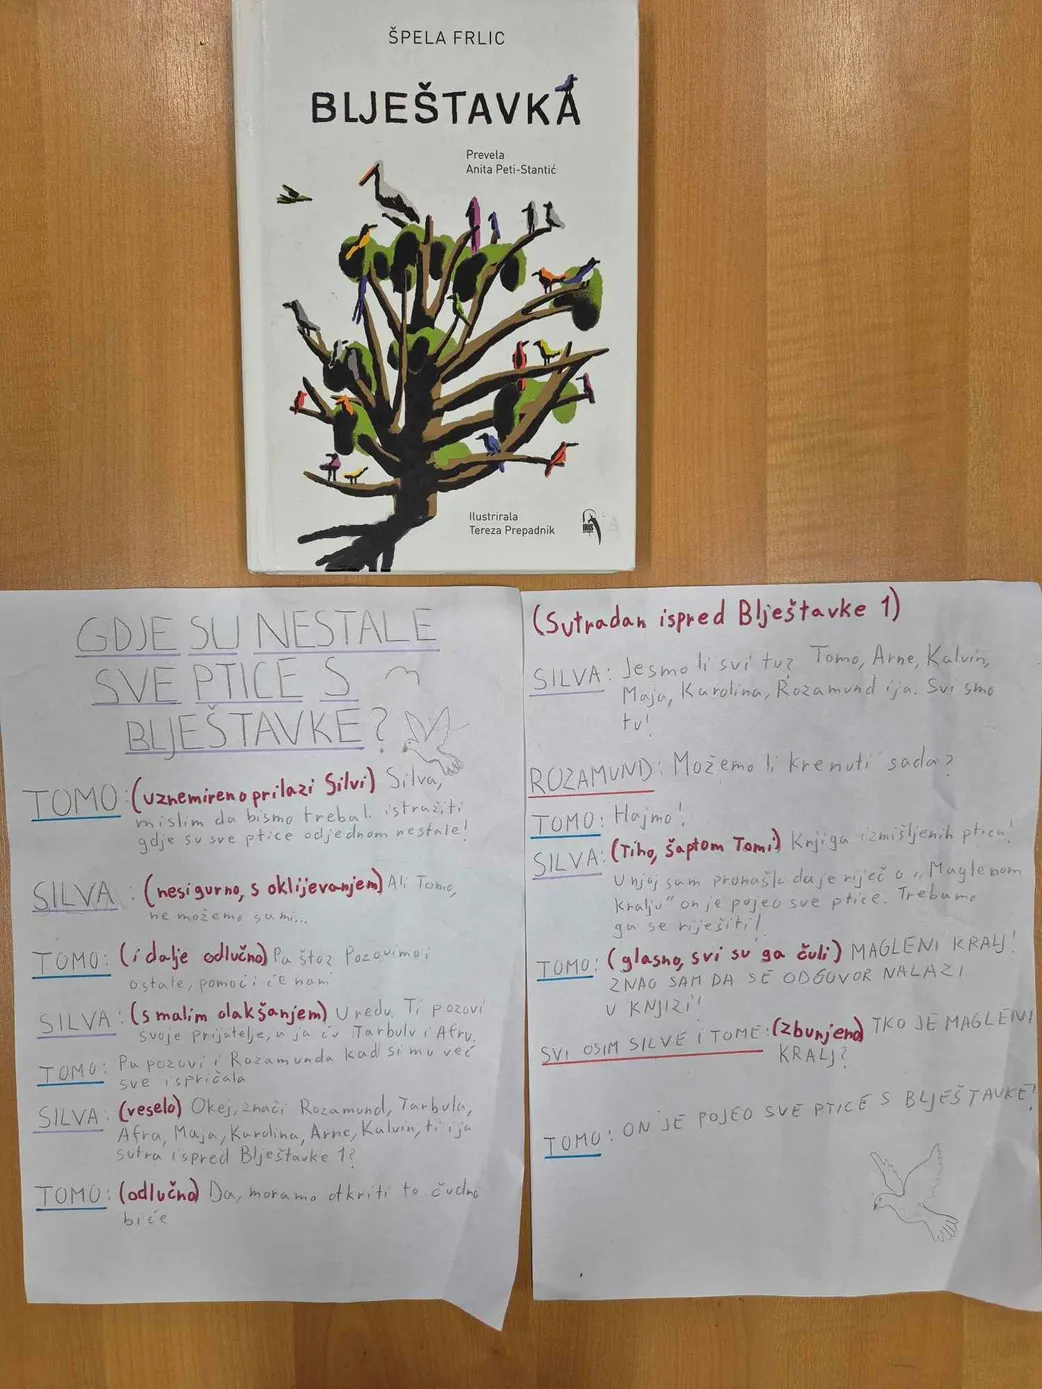 ŠPELA FRLIC
BLJEŠTAVKA
Prevela
Anita Peti-Stantić
Ilustrirala
Tereza Prepadnik
IBIS
GDJE SU NESTALE
SVE PTICE S
BLJEŠTAVKE?
TOMO: (uznemireno prilazi Silvi) Silva,
mislim da bismo trebali istražiti
gdje su sve ptice odjednom nestale!
SILVA: (nesigurno, s oklijevanjem) Ali Tomo,
ne možemo sami...
TOMO: (i dalje odlučno) Pa što? Pozovimo i
ostale, pomoći će nam
SILVA: (s malim olakšanjem) U redu. Ti pozovi
svoje prijatelje, a ja ću Tarbulu i Afru.
TOMO: Pa pozovi i Rozamunda kad si mu već
sve ispričala
SILVA: (veselo) Okej, znači Rozamund, Tarbula,
Afra, Maja, Karolina, Arne, Kalvin, ti i ja
sutra ispred Blještavke 1?
TOMO: (odlučno) Da, moramo otkriti to čudno
biće
(Sutradan ispred Blještavke 1)
SILVA: Jesmo li svi tu? Tomo, Arne, Kalvin,
Maja, Karolina, Rozamund i ja. Svi smo
tu!
ROZAMUND: Možemo li krenuti sada?
TOMO: Hajmo!
SILVA: (Tiho, šaptom Tomi) Knjiga izmišljenih ptica!
U njoj sam pronašla da je riječ o „Maglenom
kralju" on je pojeo sve ptice. Trebamo
ga se riješiti!
TOMO: (glasno, svi su ga čuli) MAGLENI KRALJ!
ZNAO SAM DA SE ODGOVOR NALAZI
U KNJIZI!
SVI OSIM SILVE I TOME: (zbunjeno) TKO JE MAGLENI
KRALJ?
TOMO: ON JE POJEO SVE PTICE S BLJEŠTAVKE!